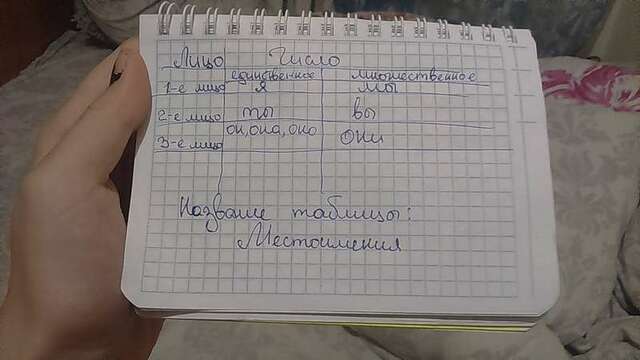 Лицо Число
единственное множественное
1-е лицо я мы
2-е лицо ты вы
3-е лицо он, она, оно они
Название таблицы:
Местоимения